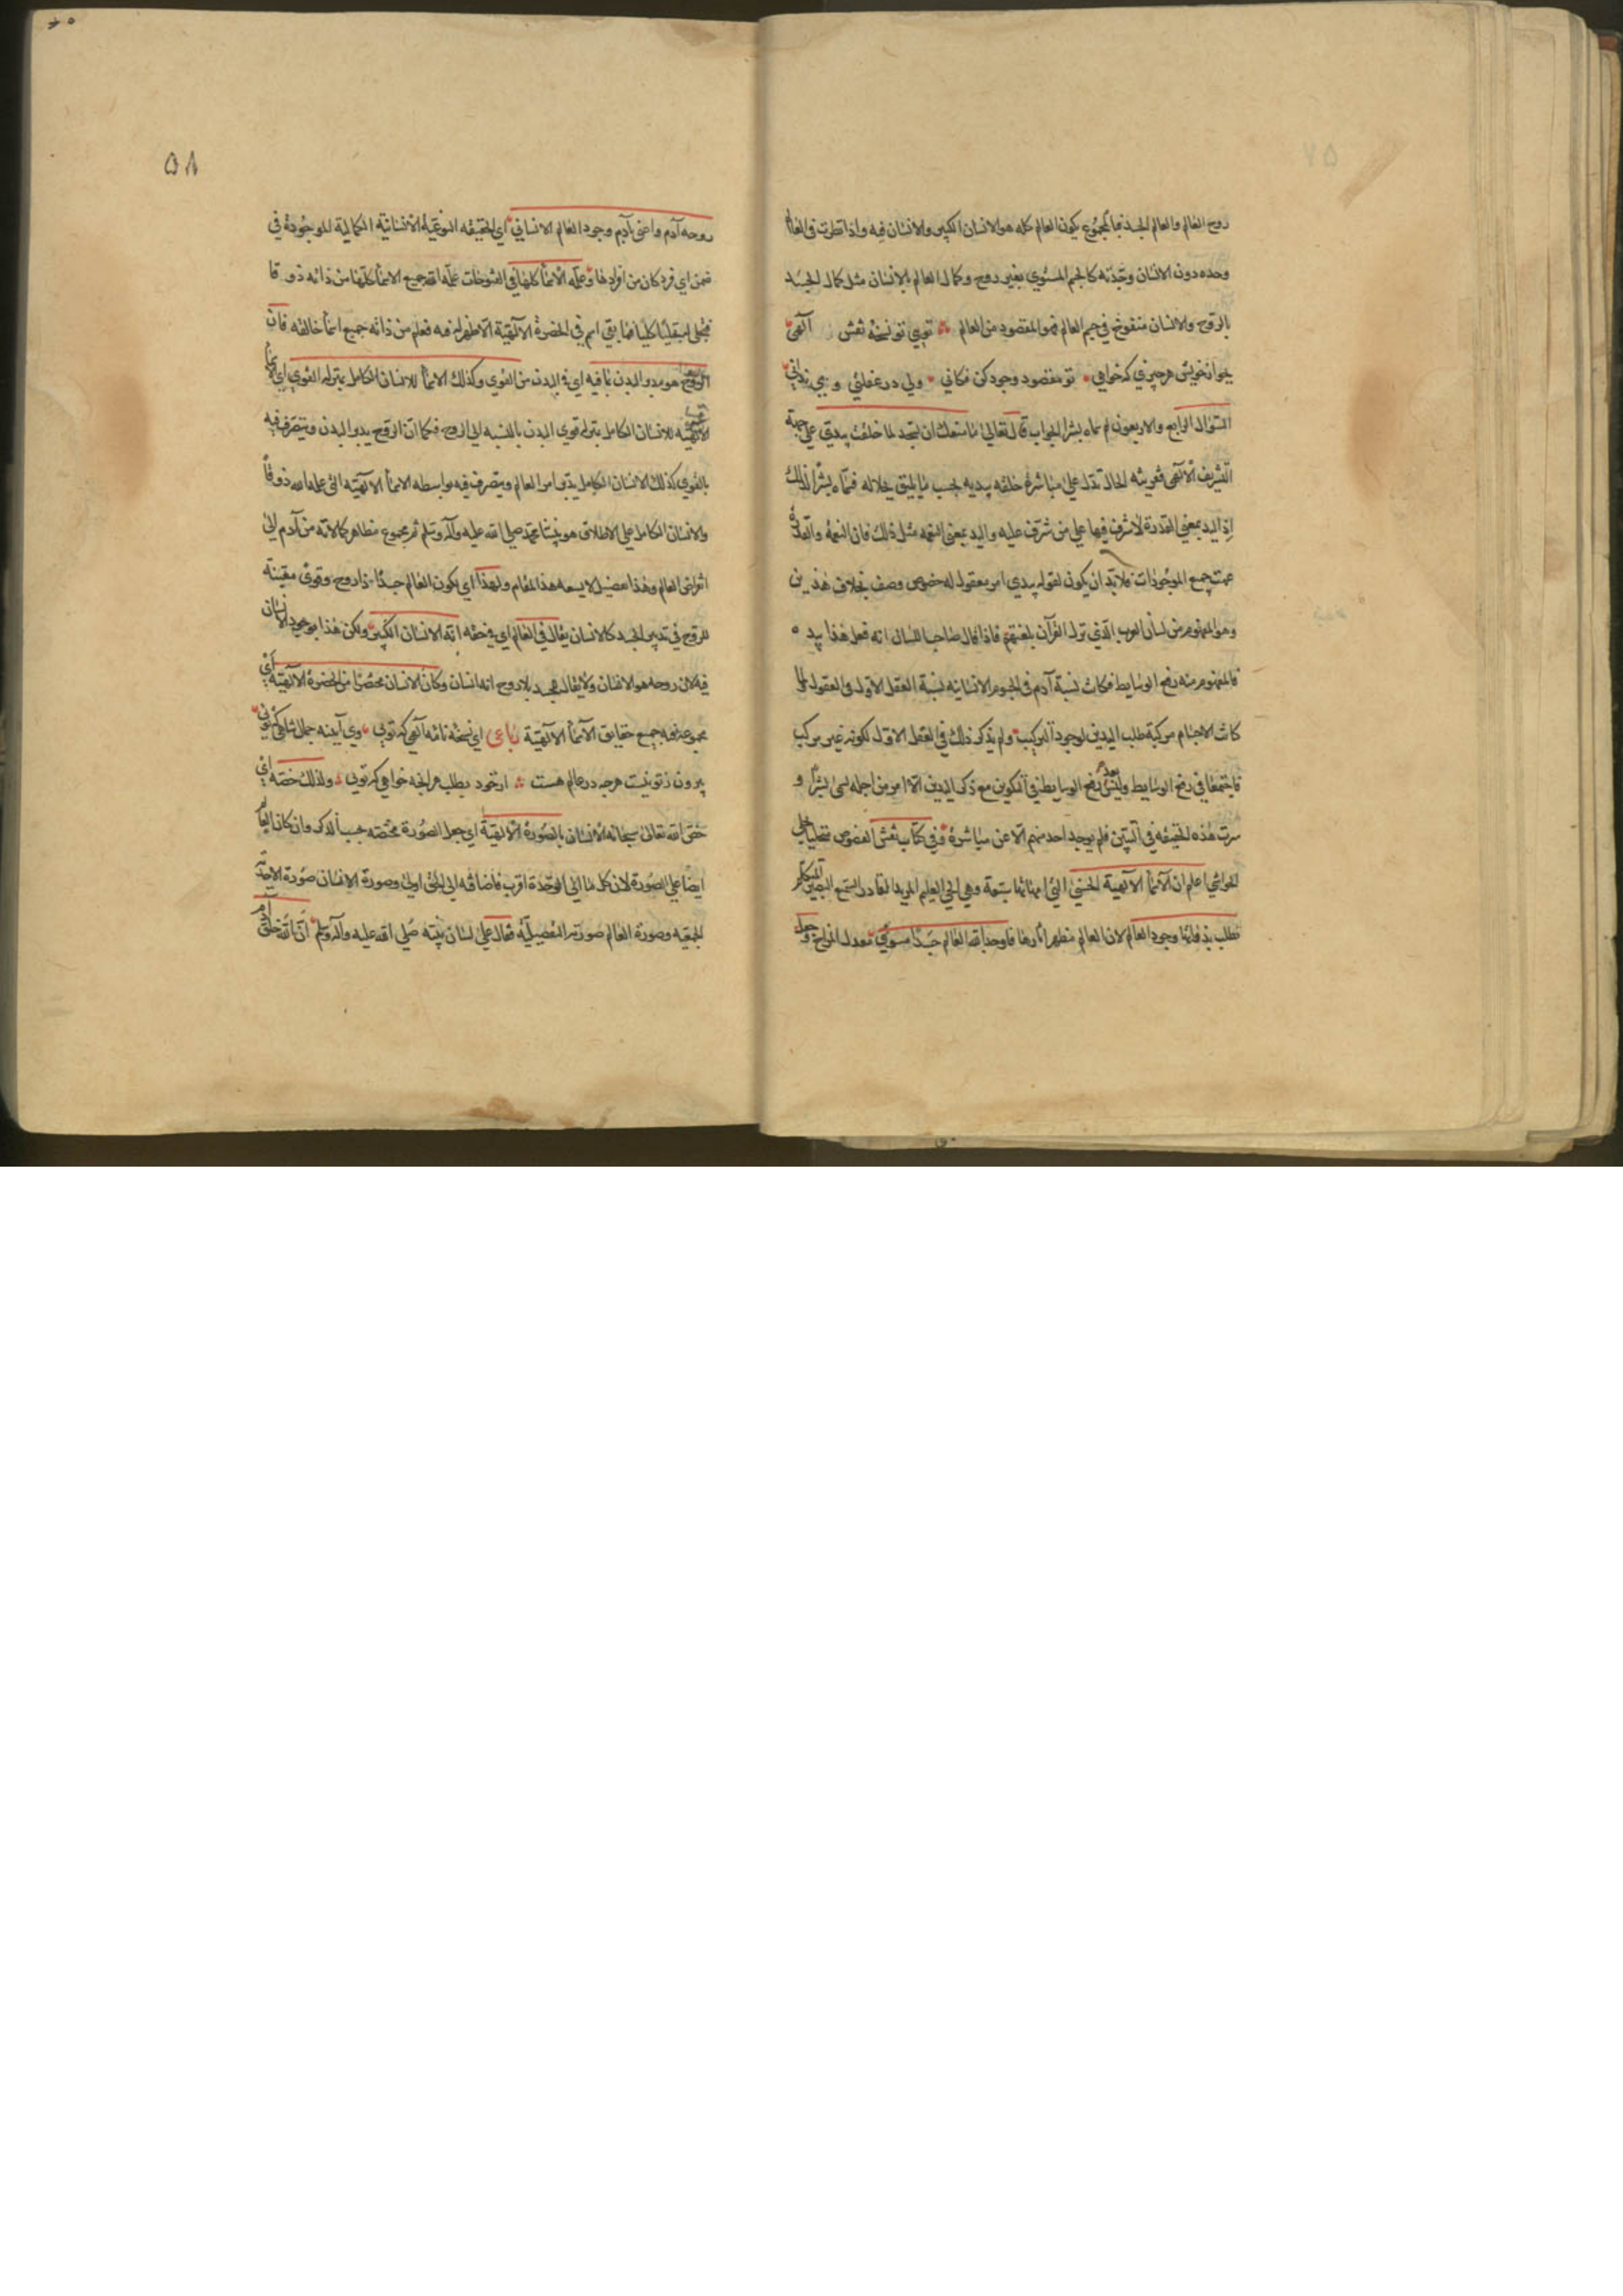 روح العالم والعالم الجسد فبالمجموع يكون العالم كله هو الانسان الكبير والانسان فيه واذا نظرت في العالم
وحده دون الانسان وجدته كالجسم المسوي بغير روح وكمال العالم بالانسان مثل كمال الجسد
بالروح والانسان منفوخ في جسم العالم فهو المقصود من العالم تويي تو نسخه نقش آلهي
بخوان خويش هر چيزي كه خواهي تو مقصود وجود كن فكاني ولي در غفلتي و مي نداني
السؤال الرابع والاربعون لم سماه بشرا الجواب قال تعالى ما منعك ان تسجد لما خلقت بيدي على جهة
التشريف الآلهي فقرينة الحال تدل على مباشرة خلقه بيديه بحسب ما يليق بجلاله فسماه بشرا لذلك
اذ اليد بمعنى القدرة لا شرف فيها على من شرف عليه واليد بمعنى النعمه مثل ذلك فان النعمة والقدرة
عمت جميع الموجودات فلابد ان يكون لقوله بيدي امر معقول له خصوص وصف بخلاف هذين
وهو المفهوم من لسان العرب الذي نزل القرآن بلغتهم فاذا قال صاحب اللسان انه فعل هذا بيده
فالمفهوم منه رفع الوسايط فكانت نسبة آدم في الجسوم الانسانيه نسبة العقل الاول في العقول ولما
كانت الاجسام مركبة طلب اليدين لوجود التركيب ولم يذكر ذلك في العقل الاول لكونه غير مركب
فاجتمعا في رفع الوسايط وليس بعد رفع الوسايط في التكوين مع ذكر اليدين الا امر من اجله سمي بشرا و
سرت هذه الحقيقه في البنين فلم يوجد احد منهم الا عن مباشرة وفي كتاب نقش الفصوص
الحواشي اعلم ان الاسمآ الآلهية الحسنى التي امهاتها سبعة وهي الحي العليم المريد القادر السميع البصير المتكلم
تطلب بذواتها وجود العالم لان العالم مظهر آثارها فاوجد الله العالم جسدا مسوي معدل المزاج وجعل
۵۸
روحه آدم واعني بآدم وجود العالم الانساني اي الحقيقه النوعية الانسانية الكمالية الموجودة في
ضمن اي فرد كان من افرادها وعلمه الاسمآ كلها في الفتوحات علمه الله جميع الاسمآ كلها من ذاته ذوقا
فتجلى له تجليا كليا فما بقي اسم في الحضرة الآلهية الا ظهر له فيه فعلم من ذاته جميع اسمآ خالقه فان
الروح هو مدبر البدن بما فيه اي في البدن من القوي وكذلك الاسمآ للانسان الكامل بمنزله القوي اي الاسمآ
الآلهيه للانسان الكامل بمنزله قوي البدن بالنسبه الى الروح فكما ان الروح يدبر البدن ويتصرف فيه
بالقوي كذلك الانسان الكامل يدبر امر العالم ويتصرف فيه بواسطه الاسمآ الآلهيه التي علمه الله ذوقا
والانسان الكامل على الاطلاق هو نبينا محمد صلى الله عليه وآله وسلم ثم مجموع مظاهر كمالاته من آدم الى
انقراض العالم وهذا تفصيل لا يسعه هذا المقام ولهذا اي لكون العالم جسدا ذا روح وقوى معينة
للروح في تدبير الجسد كالانسان يقال في العالم اي في حقه انه الانسان الكبير ولكن هذا بوجود الانسان
فيه لان روحه هو الانسان ولا يقال لجسد بلا روح انه انسان وكان الانسان مختصرا من الحضرة الآلهيه اي
مجموعة فيه جميع حقايق الاسمآ الآلهيّة رباعى اي نسخه نامه آلهي كه تويي وي آينه جمال شاهي كه تويي
بيرون ز تو نيست هرچه در عالم هست از خود بطلب هر آنچه خواهي كه تويي ولذلك خصه اي
خص الله تعالى سبحانه الانسان بالصورة الالهية اي جعل الصورة مختصه به حسب الذكر وان كان العالم
ايضا على الصورة لان كل ما الى الوحدة اقرب فاضافته الى الحق اولى وصورة الانسان صورته الاحدية
الجمعيه وصورة العالم صورته التفصيلية فقال على لسان نبيه صلى الله عليه وآله وسلم ان الله خلق آدم